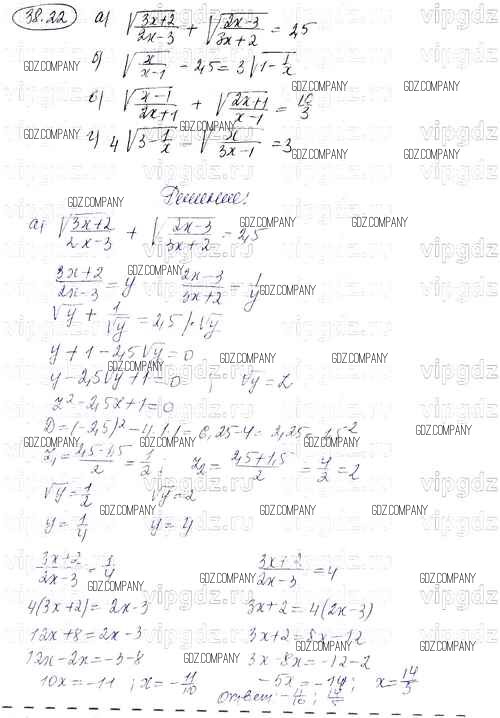 38.22 а) √(3x+2)/(2x-3) + √(2x-3)/(3x+2) = 2,5
б) √x/(x-1) - 2,5 = 3√1-1/x
в) √(x-1)/(2x+1) + √(2x+1)/(x-1) = 10/3
г) 4√3-1/x - √x/(3x-1) = 3
Решение:
а) √(3x+2)/(2x-3) + √(2x-3)/(3x+2) = 2,5
(3x+2)/(2x-3) = y (2x-3)/(3x+2) = 1/y
√y + 1/√y = 2,5 | · √y
y + 1 - 2,5√y = 0
y - 2,5√y + 1 = 0 ; √y = z
z² - 2,5x + 1 = 0
D = (-2,5)² - 4·1·1 = 6,25 - 4 = 2,25 = 1,5²
z₁ = (2,5-1,5)/2 = 1/2 ; z₂ = (2,5+1,5)/2 = 4/2 = 2
√y = 1/2 √y = 2
y = 1/4 y = 4
(3x+2)/(2x-3) = 1/4 (3x+2)/(2x-3) = 4
4(3x+2) = 2x-3 3x+2 = 4(2x-3)
12x+8 = 2x-3 3x+2 = 8x-12
12x-2x = -3-8 3x-8x = -12-2
10x = -11 ; x = -11/10 -5x = -14 ; x = 14/5
Ответ:
GDZ.COMPANY
vipgdz.ru